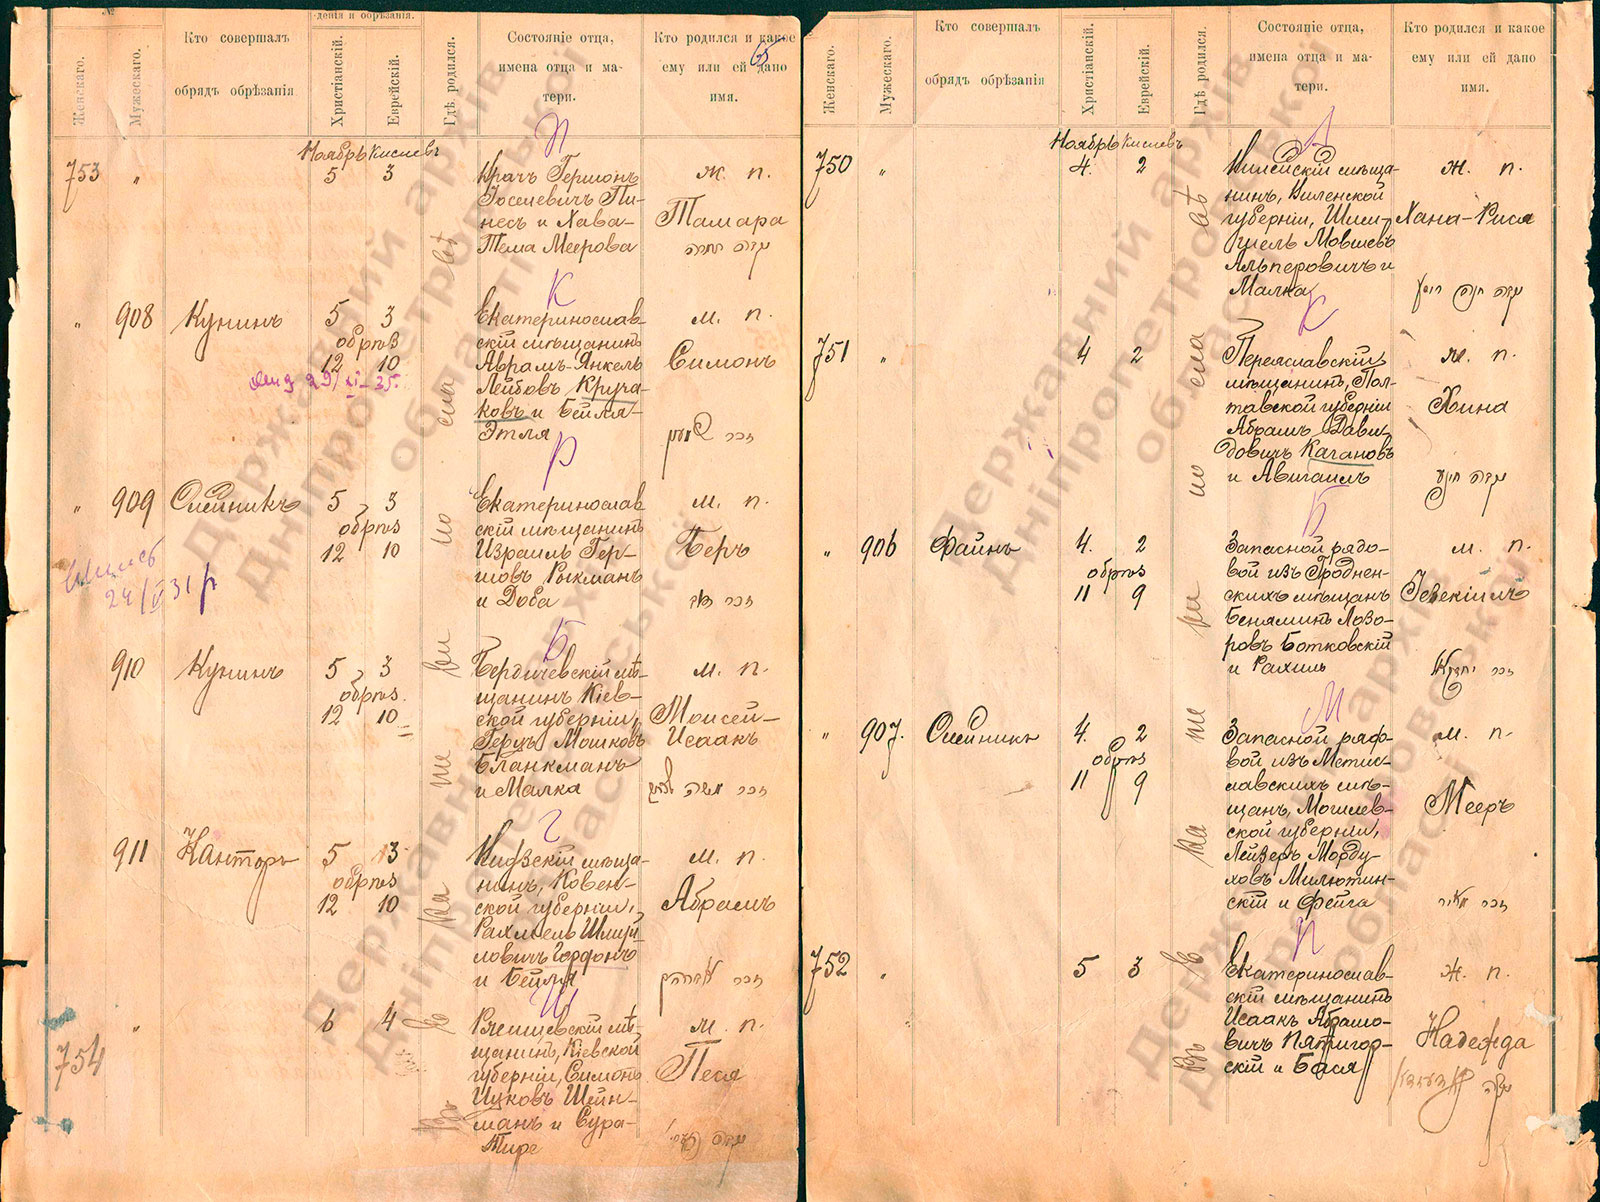 №
дения и обрѣзанія.
Женскаго.
Мужескаго.
Кто совершалъ
обрядъ обрѣзанія
Христіанскій.
Еврейскій.
Гдѣ родился.
Состояніе отца,
имена отца и ма-
тери.
Кто родился и какое
ему или ей дано
имя.
65
Ноябрь Кислевъ
П
753 " 5 3
Врачъ Гершонъ
Іоселевичъ Пи-
несъ и Хава-
Тема Меерова
ж. п.
Тамара
К
" 908 Кунинъ 5 3
обрѣз
12 10
29/XI-35.
Екатеринослав-
скій мѣщанинъ
Аврамъ-Янкель
Лейбовъ Круча-
ковъ и Бейля-
Этля
м. п.
Симонъ
Р
" 909 Олейникъ 5 3
обрѣз
12 10
24/VI 31 р
Екатеринослав
скій мѣщанинъ
Израиль Гер-
шовъ Рыкманъ
и Доба
м. п.
Беръ
Б
910 Кунинъ 5 3
обрѣз.
12 10
Бердичевскій мѣ-
щанинъ Кіев-
ской губерніи,
Герцъ Мошковъ
Бланкманъ
и Малка
м. п.
Моисей-
Исаакъ
Г
911 Канторъ 5 3
обрѣз
12 10
мѣща-
нинъ, Ковен-
ской губерніи,
Рахміель Шмуй
ловичъ Гордонъ
и Бейля
м. п.
Абрамъ
Ш
754 " 6 4
Ржищевскій мѣ-
щанинъ, Кіевской
губерніи, Симонъ
Ицковъ Шейн-
манъ и Сура-
ж. п.
Песя
Въ Екатеринославѣ
Женскаго.
Мужескаго.
Кто совершалъ
обрядъ обрѣзанія
Христіанскій.
Еврейскій.
Гдѣ родился.
Состояніе отца,
имена отца и ма-
тери.
Кто родился и какое
ему или ей дано
имя.
Ноябрь Кислевъ
А
750 " 4. 2
Вилейскій мѣща-
нинъ, Виленской
губерніи,
Мовшевъ
Альперовичъ и
Малка
ж. п.
Хана-Рися
К
751 " 4 2
Переяславскій
мѣщанинъ, Пол-
тавской губерніи
Абрамъ Дави-
довичъ Кагановъ
и Авигаилъ
ж. п.
Хина
Б
" 906 Файнъ 4. 2
обрѣз
11 9
Запасной рядо-
вой изъ Гроднен-
скихъ мѣщанъ
Беняминъ Лозо-
ровъ Ботковскій
и Рахиль
м. п.
Іезекіиль
М
" 907. Олейникъ 4. 2
обрѣз
11 9
Запасной ряд-
вой изъ Мстис-
лавскихъ мѣ-
щанъ, Могилев-
ской губерніи,
Лейзеръ Морду-
ховъ Милютин-
скій и Фейга
м. п.
Мееръ
П
752 " 5 3
Екатеринослав-
скій мѣщанинъ
Исаакъ Абрамо-
вичъ Пятигор-
скій и Бася
ж. п.
Надежда
Въ Екатеринославѣ
Державний архів
Дніпропетровської
області